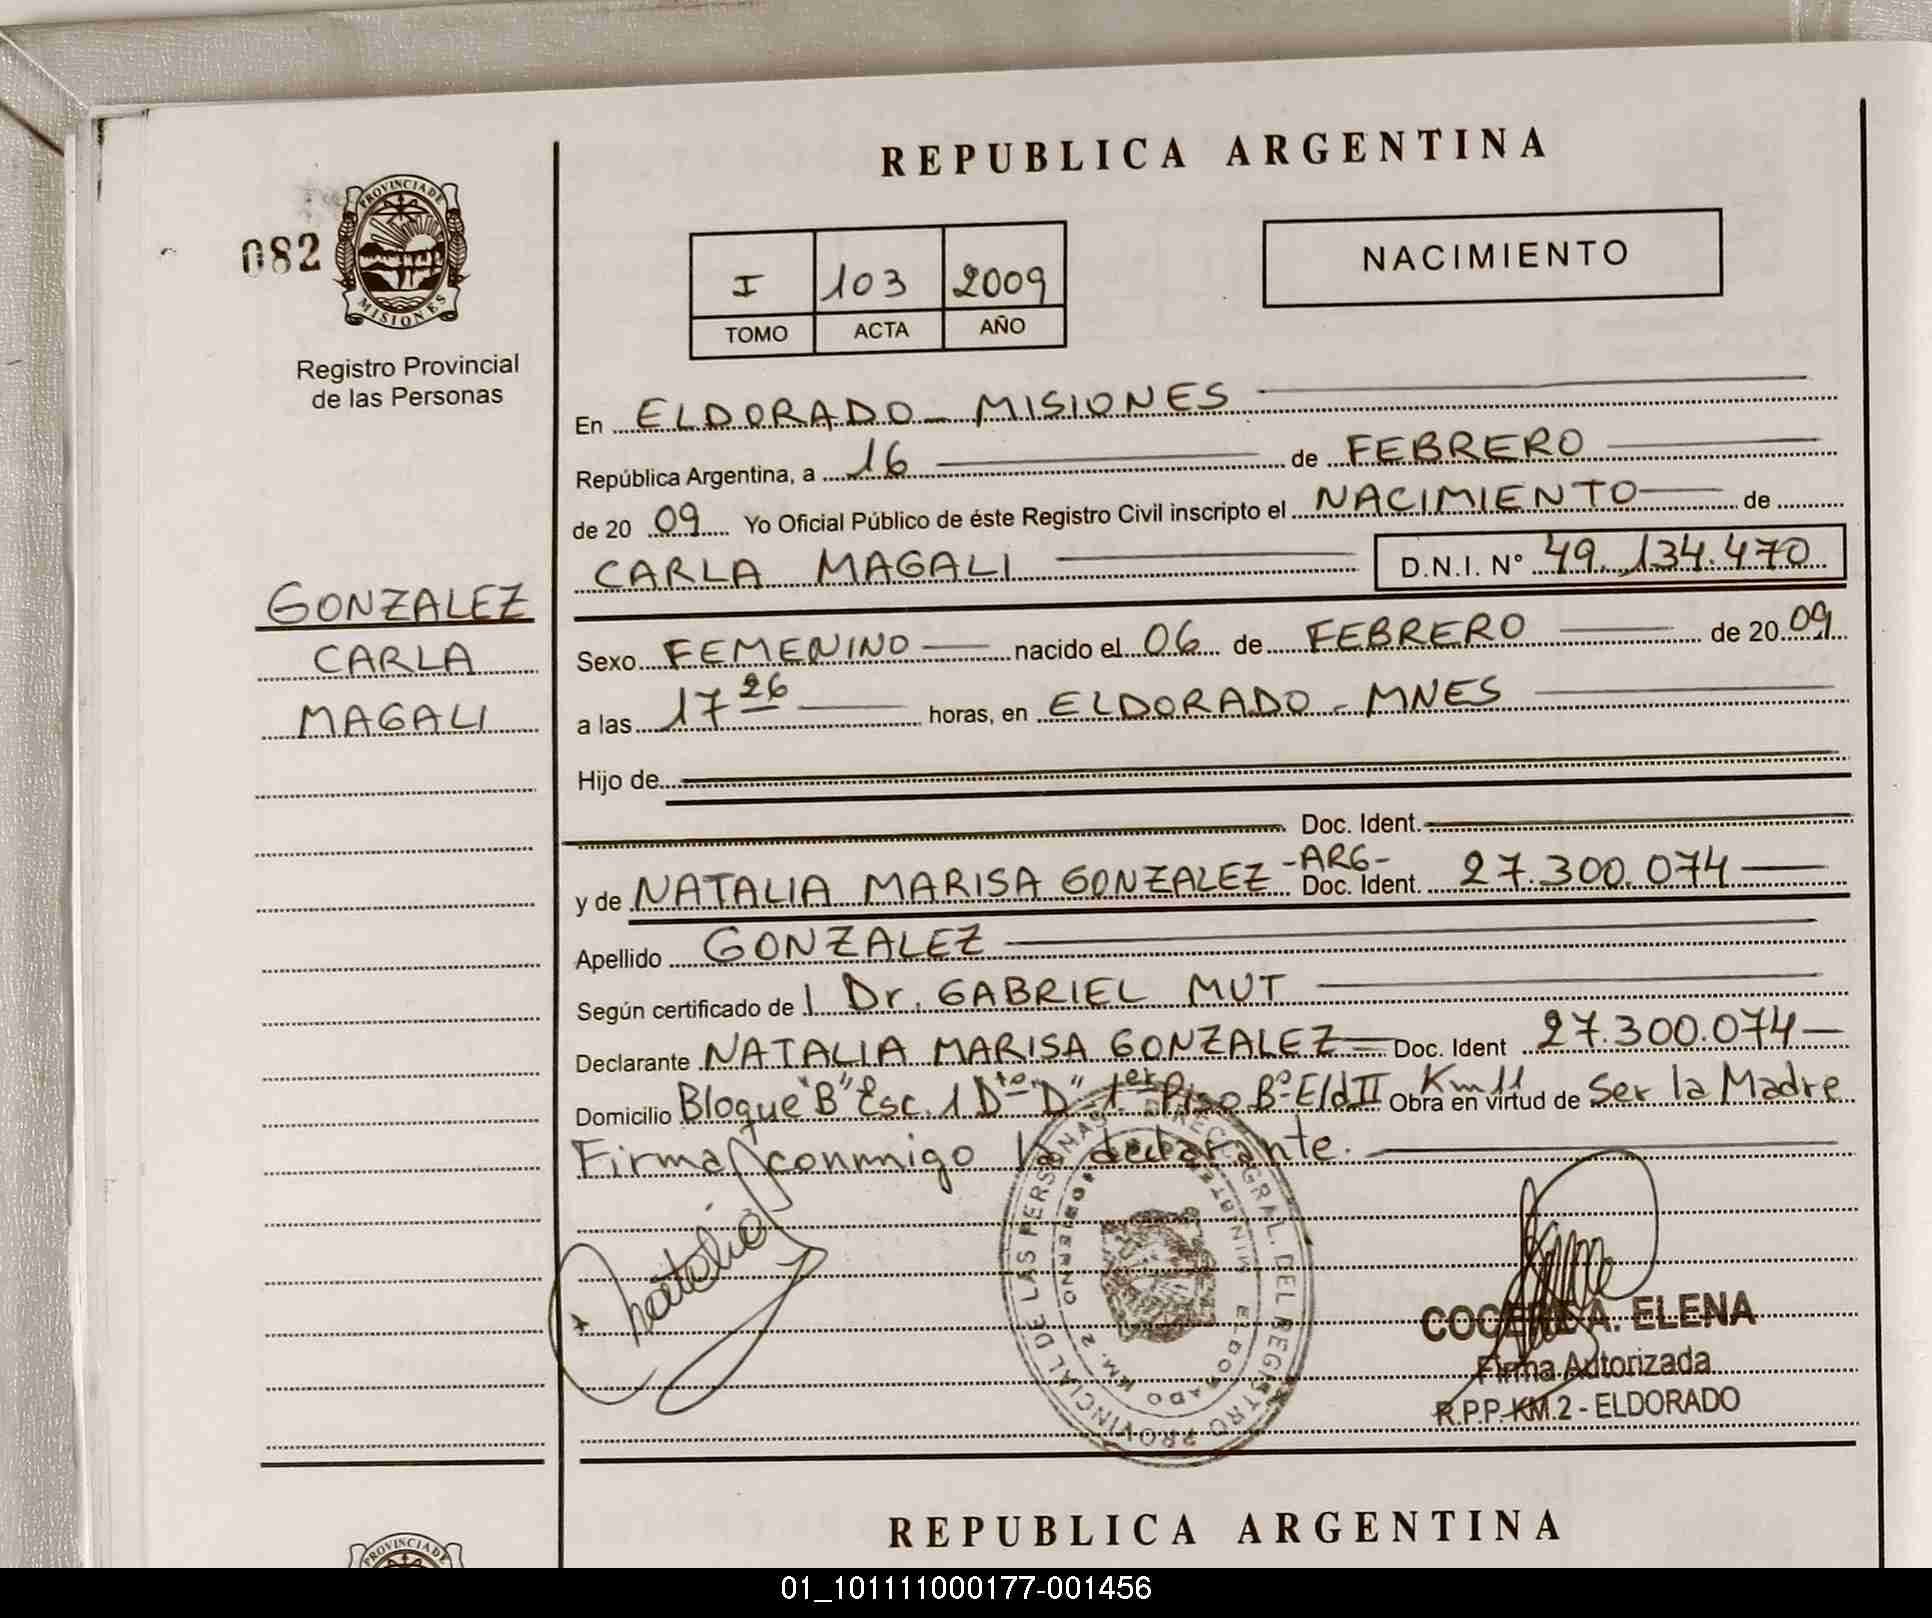 REPUBLICA ARGENTINA
082
PROVINCIA DE
MISIONES
Registro Provincial
de las Personas
I 103 2009
TOMO ACTA AÑO
NACIMIENTO
En ELDORADO - MISIONES
República Argentina, a 16 de FEBRERO
de 20 09 Yo Oficial Público de éste Registro Civil inscripto el NACIMIENTO de
CARLA MAGALI D.N.I. Nº 49.134.470
GONZALEZ
CARLA
MAGALI
Sexo FEMENINO nacido el 06 de FEBRERO de 20 09
a las 17 26 horas, en ELDORADO - MNES
Hijo de
Doc. Ident.
y de NATALIA MARISA GONZALEZ -ARG- Doc. Ident. 27.300.074
Apellido GONZALEZ
Según certificado de l Dr. GABRIEL MUT
Declarante NATALIA MARISA GONZALEZ Doc. Ident 27.300.074
Domicilio Bloque "B" Esc. 1 Dto "D" 1er Piso Bº Eld II Km 11 Obra en virtud de Ser la Madre
Firma conmigo la declarante.
Natalia
DIREC. GRAL. DEL REGISTRO PROVINCIAL DE LAS PERSONAS
ELDORADO KM. 2
A. ELENA
Firma Autorizada
R.P.P. KM.2 - ELDORADO
REPUBLICA ARGENTINA
PROVINCIA DE
01_101111000177-001456